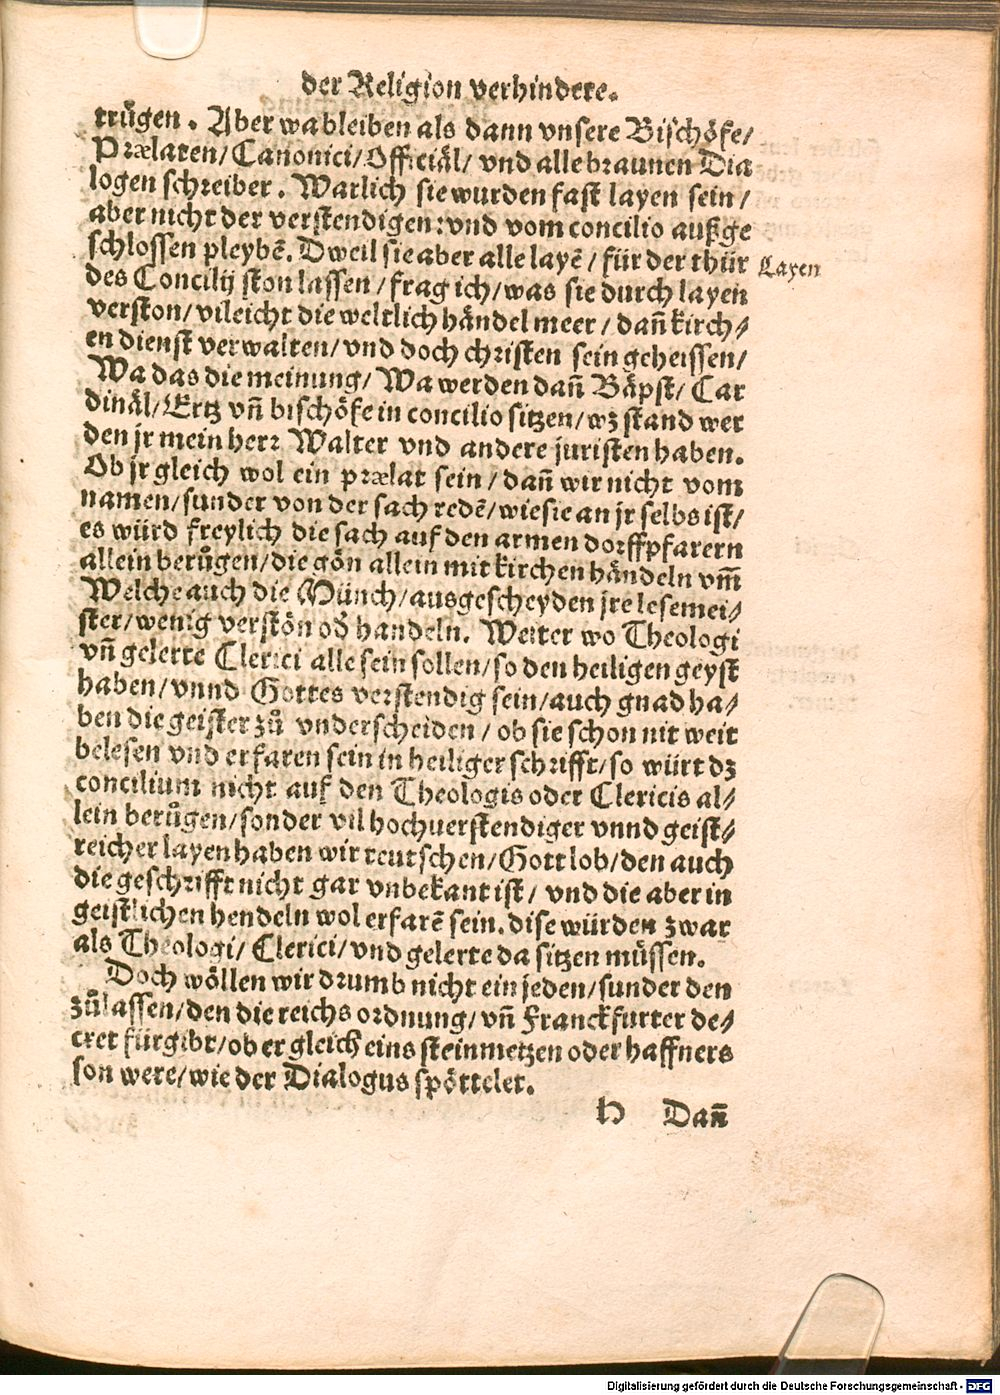 der Religion verhindere.
trügen. Aber wa bleiben als dann vnsere Bischöfe/
Prælaten/ Canonici/ Officiäl/ vnd alle braunen Dia
logen schreiber. Warlich sie wurden fast layen sein/
aber nicht der verstendigen: vnd vom concilio außge
schlossen pleybē. Dweil sie aber alle layē/ für der thür
Layen
des Concilij ston lassen/ frag ich/ was sie durch layen
verston/ vileicht die weltlich händel meer/ dañ kirch⸗
en dienst verwalten/ vnd doch christen sein geheissen/
Wa das die meinung/ Wa werden dañ Bäpst/ Car
dinäl/ Ertz vñ bischöfe in concilio sitzen/ wz stand wer
den jr mein herr Walter vnd andere juristen haben.
Ob jr gleich wol ein prælat sein/ dañ wir nicht vom
namen/ sunder von der sach redē/ wie sie an jr selbs ist/
es würd freylich die sach auf den armen dorffpfarern
allein berůgen/ die gön allein mit kirchen händeln vm̃
Welche auch die Münch/ ausgescheyden jre lesemei⸗
ster/ wenig verstön od̕ handeln. Weiter wo Theologi
vñ gelerte Clerici alle sein sollen/ so den heiligen geyst
haben/ vnnd Gottes verstendig sein/ auch gnad ha⸗
ben die geister zů vnderscheiden/ ob sie schon nit weit
belesen vnd erfaren sein in heiliger schrifft/ so würt dz
concilium nicht auf den Theologis oder Clericis al⸗
lein berůgen/ sonder vil hochuerstendiger vnnd geist⸗
reicher layen haben wir teutschen/ Gott lob/ den auch
die geschrifft nicht gar vnbekant ist/ vnd die aber in
geistlichen hendeln wol erfarē sein. dise würden zwar
als Theologi/ Clerici/ vnd gelerte da sitzen müssen.
Doch wöllen wir drumb nicht ein jeden/ sunder den
zůlassen/ den die reichs ordnung/ vñ Franckfurter de⸗
cret fürgibt/ ob er gleich eins steinmetzen oder haffners
son were/ wie der Dialogus spöttelet.
h Dañ
Digitalisierung gefördert durch die Deutsche Forschungsgemeinschaft - DFG